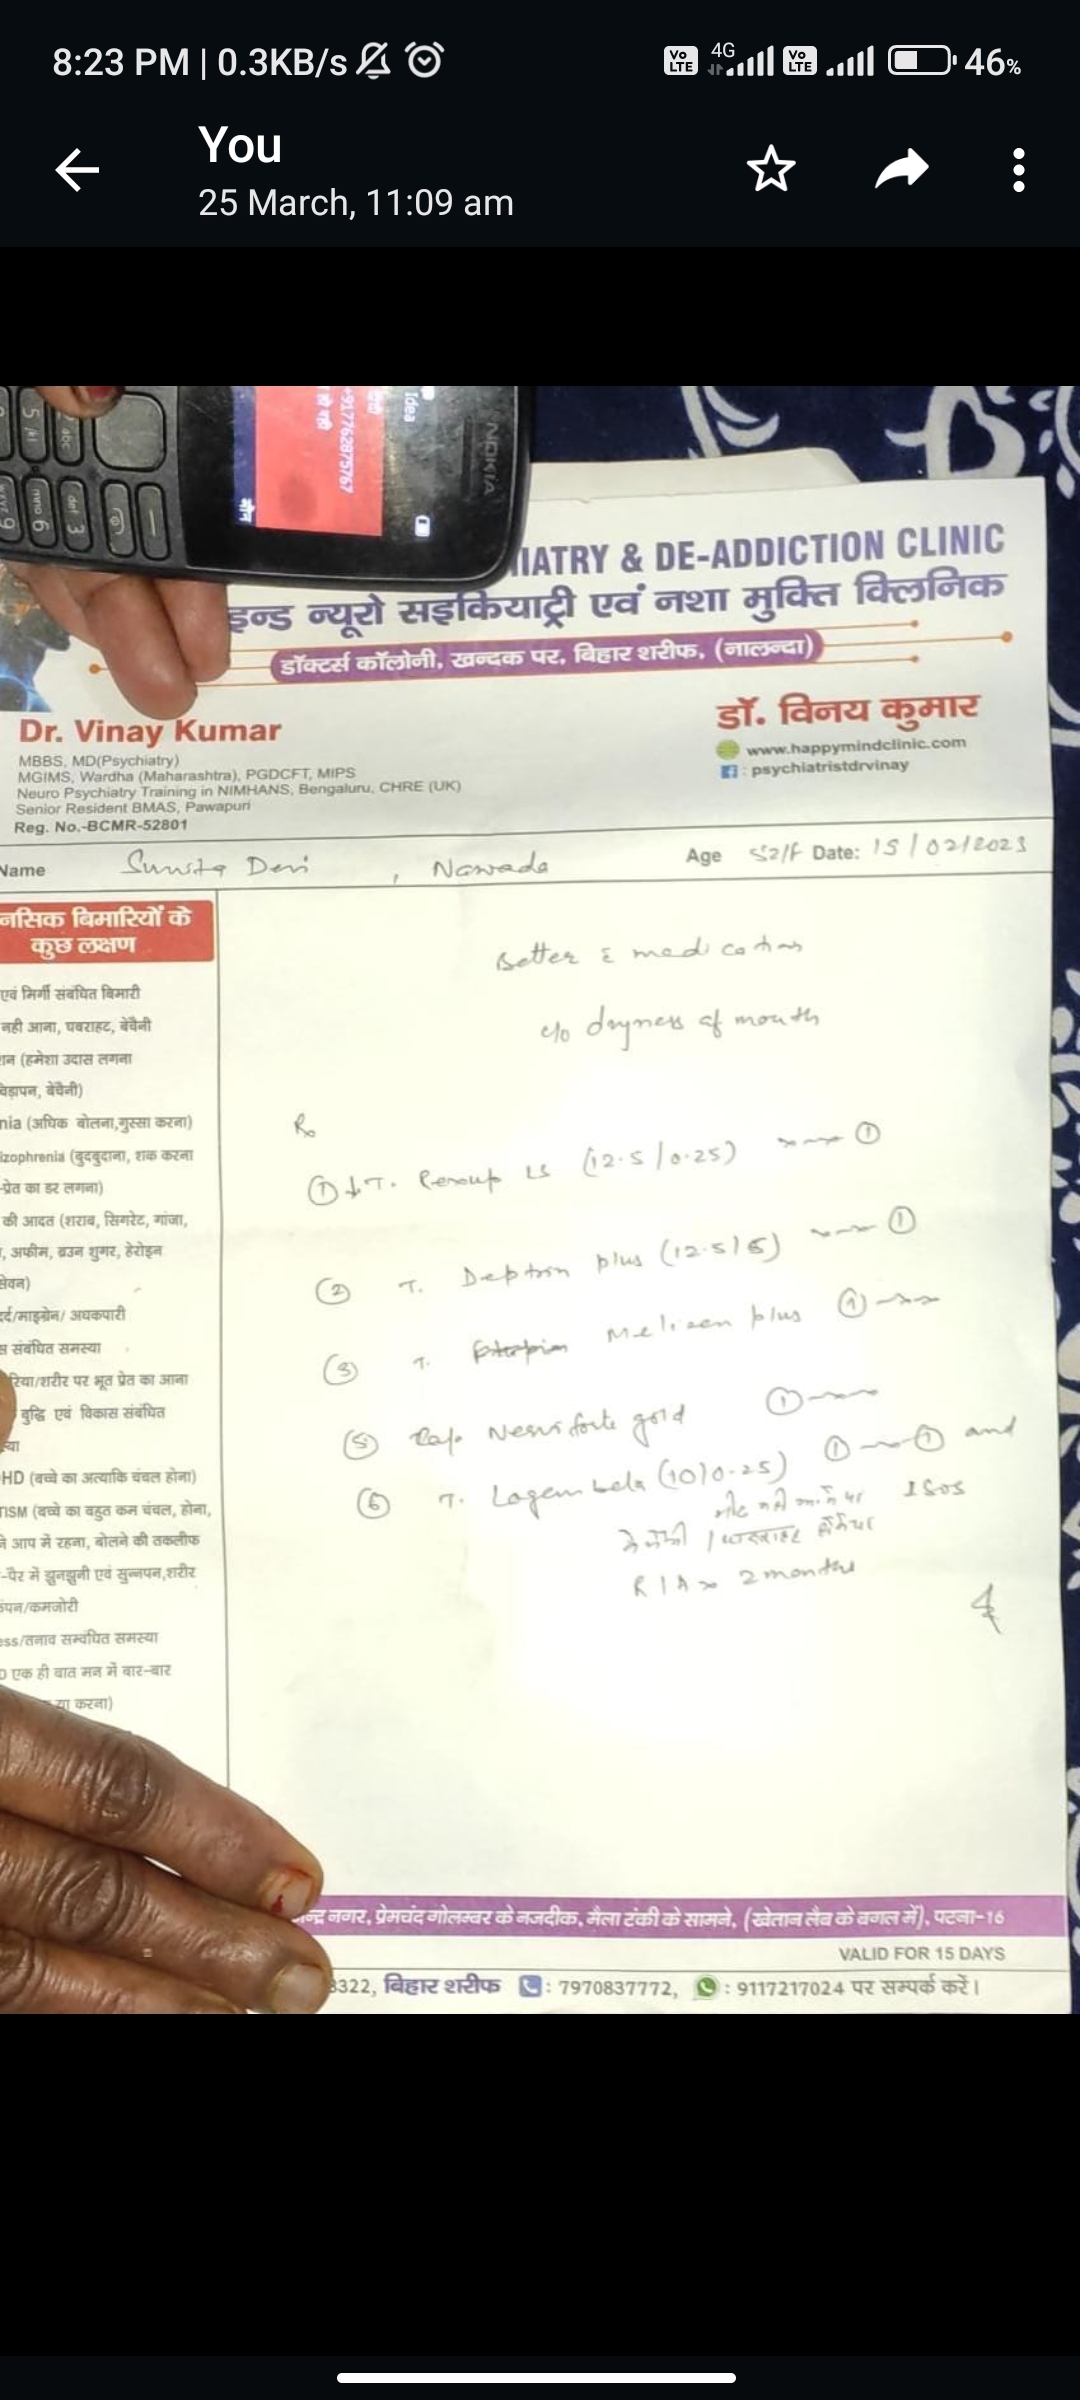 8:23 PM | 0.3KB/s
Vo LTE 4G Vo LTE 46%
You
25 March, 11:09 am
NOKIA
Idea
+917762875767
IATRY & DE-ADDICTION CLINIC
इन्ड न्यूरो सइकियाट्री एवं नशा मुक्ति क्लिनिक
डॉक्टर्स कॉलोनी, खन्दक पर, बिहार शरीफ, (नालन्दा)
Dr. Vinay Kumar
MBBS, MD(Psychiatry)
MGIMS, Wardha (Maharashtra), PGDCFT, MIPS
Neuro Psychiatry Training in NIMHANS, Bengaluru, CHRE (UK)
Senior Resident BMAS, Pawapuri
Reg. No.-BCMR-52801
डॉ. विनय कुमार
www.happymindclinic.com
: psychiatristdrvinay
Name Sunita Devi, Nawada Age 52/F Date: 15/02/2023
नसिक बिमारियों के
कुछ लक्षण
एवं मिर्गी संबंधित बिमारी
नही आना, घबराहट, बेचैनी
शन (हमेशा उदास लगना
चिड़ापन, बेचैनी)
nia (अधिक बोलना,गुस्सा करना)
izophrenia (बुदबुदाना, शक करना
-प्रेत का डर लगना)
की आदत (शराब, सिगरेट, गांजा,
, अफीम, ब्रउन शुगर, हेरोइन
सेवन)
दर्द/माइग्रेन/ अधकपारी
स संबंधित समस्या
रिया/शरीर पर भूत प्रेत का आना
बुद्धि एवं विकास संबंधित
या
HD (बच्चे का अत्याकि चंचल होना)
TISM (बच्चे का बहुत कम चंचल, होना,
ने आप में रहना, बोलने की तकलीफ
-पैर में झुनझुनी एवं सुन्नपन,शरीर
कंपन/कमजोरी
ess/तनाव सम्बंधित समस्या
D एक ही बात मन में बार-बार
या करना)
Better c medications
c/o dryness of mouth
Rx
① ↓T. LS (12.5/0.25) ①
② T. Deptrin plus (12.5/5) ①
③ T. Melizen plus ①
⑤ Cap Nervi forte gold ①
⑥ T. (10/0.25) ① ① and
नींद नहीं आने पर 1SOS
बेचैनी / घबराहट होने पर
R/A 2 months
न्द्र नगर, प्रेमचंद गोलम्बर के नजदीक, मैला टंकी के सामने, (खेतान लैब के बगल में), पटना-16
VALID FOR 15 DAYS
3322, बिहार शरीफ : 7970837772, : 9117217024 पर सम्पर्क करें।